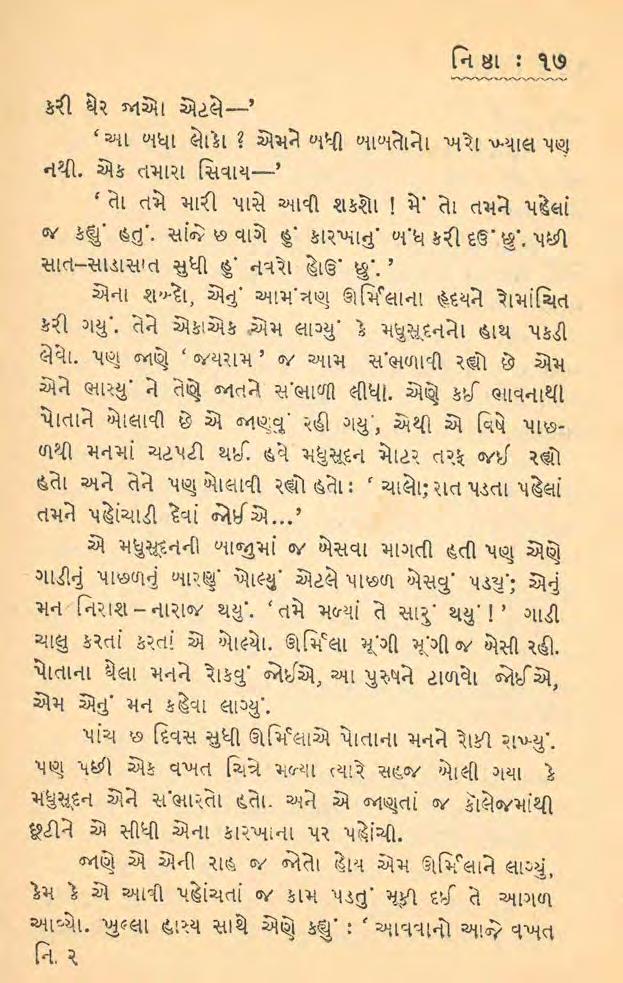 નિષ્ઠા : ૧૭
કરી ઘેર જાઓ એટલે—’
‘આ બધા લોકો ? એમને બધી બાબતોનો ખરો ખ્યાલ પણ
નથી. એક તમારા સિવાય—’
‘તો તમે મારી પાસે આવી શકશો ! મેં તો તમને પહેલાં
જ કહ્યું હતું. સાંજે છ વાગે હું કારખાનું બંધ કરી દઉં છું. પછી
સાત–સાડાસાત સુધી હું નવરો હોઉં છું.’
એના શબ્દો, એનું આમંત્રણ ઊર્મિલાના હૃદયને રોમાંચિત
કરી ગયું. તેને એકાએક એમ લાગ્યું કે મધુસૂદનનો હાથ પકડી
લેવો. પણ જાણે ‘જયરામ’ જ આમ સંભળાવી રહ્યો છે એમ
એને ભાસ્યું ને તેણે જાતને સંભાળી લીધી. એણે કઈ ભાવનાથી
પોતાને બોલાવી છે એ જાણવું રહી ગયું, એથી એ વિષે પાછ-
ળથી મનમાં ચટપટી થઈ. હવે મધુસૂદન મોટર તરફ જઈ રહ્યો
હતો અને તેને પણ બોલાવી રહ્યો હતો: ‘ચાલો; રાત પડતા પહેલાં
તમને પહોંચાડી દેવાં જોઈએ...’
એ મધુસૂદનની બાજુમાં જ બેસવા માગતી હતી પણ એણે
ગાડીનું પાછળનું બારણું ખોલ્યું એટલે પાછળ બેસવું પડયું; એનું
મન નિરાશ – નારાજ થયું. ‘તમે મળ્યાં તે સારું થયું !’ ગાડી
ચાલુ કરતાં કરતાં એ બોલ્યો. ઊર્મિલા મૂંગી મૂંગી જ બેસી રહી.
પોતાના ઘેલા મનને રોકવું જોઈએ, આ પુરુષને ટાળવો જોઈએ,
એમ એનું મન કહેવા લાગ્યું.
પાંચ છ દિવસ સુધી ઊર્મિલાએ પોતાના મનને રોકી રાખ્યું.
પણ પછી એક વખત ચિત્રે મળ્યા ત્યારે સહજ બોલી ગયા કે
મધુસૂદન એને સંભારતો હતો. અને એ જાણતાં જ કૉલેજમાંથી
છૂટીને એ સીધી એના કારખાના પર પહોંચી.
જાણે એ એની રાહ જ જોતો હોય એમ ઊર્મિલાને લાગ્યું,
કેમ કે એ આવી પહોંચતાં જ કામ પડતું મૂકી દઈ તે આગળ
આવ્યો. ખુલ્લા હાસ્ય સાથે એણે કહ્યું : ‘આવવાનો આજે વખત
નિ. ૨